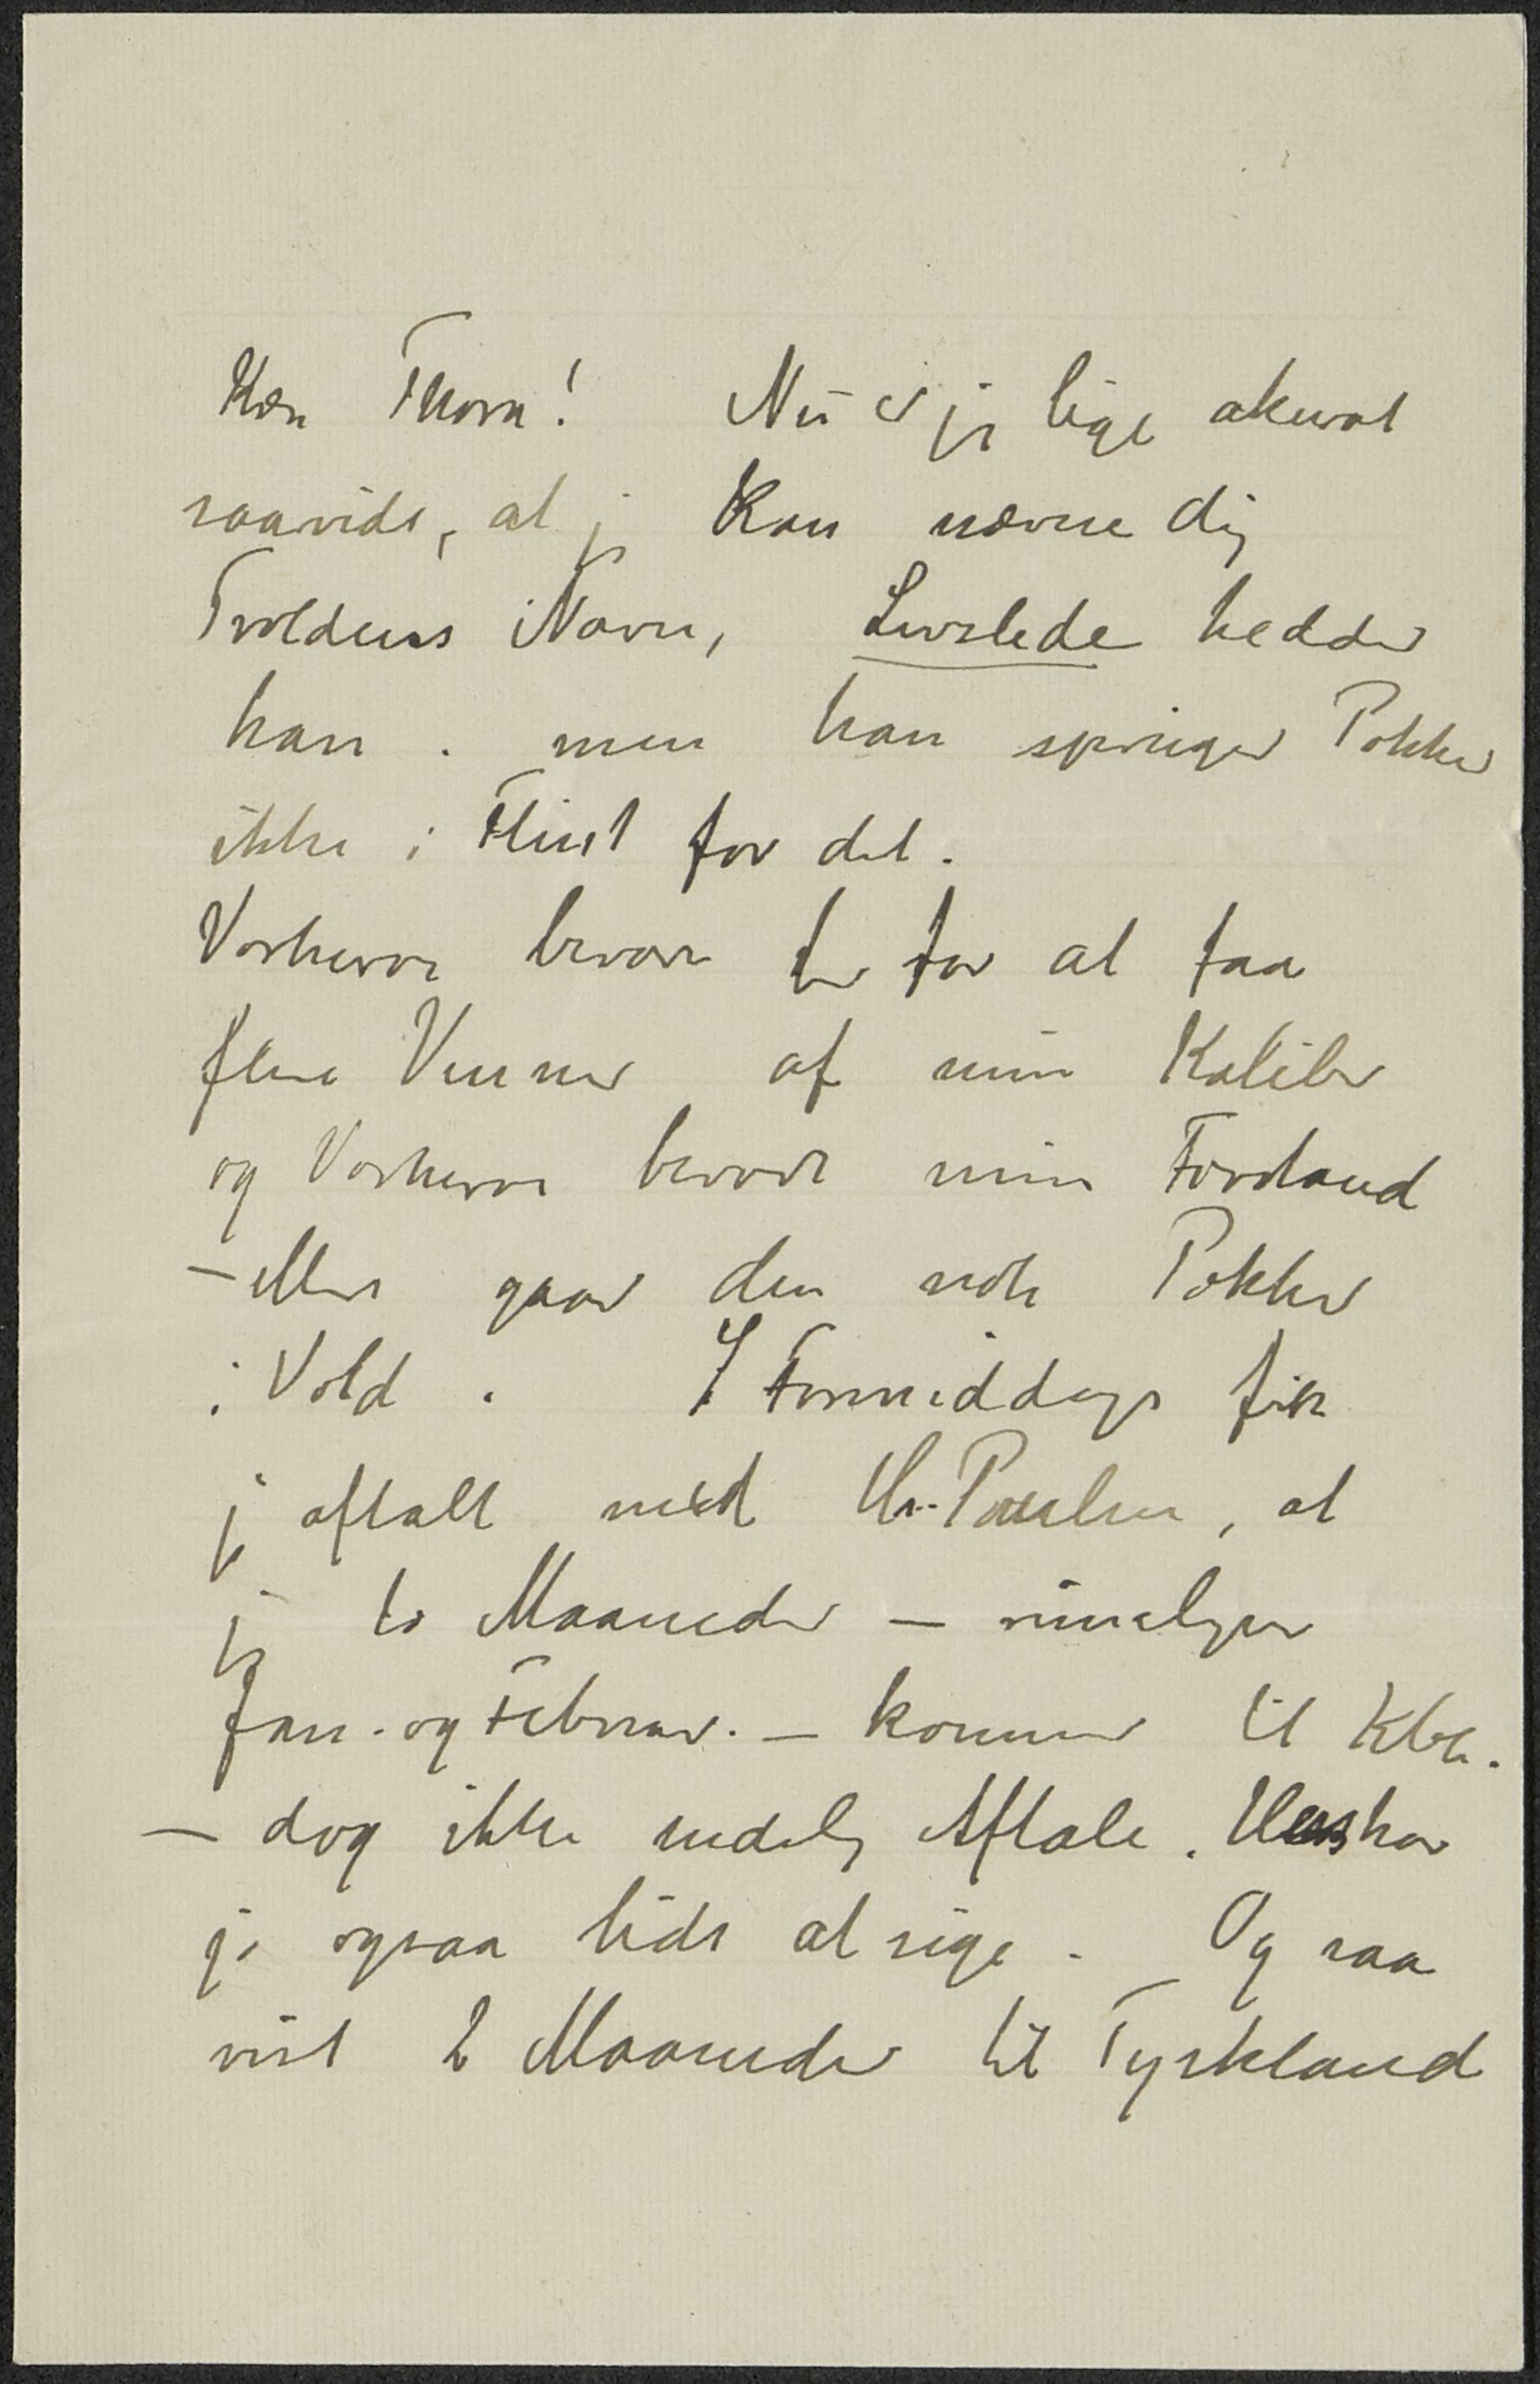 Kære Thora! Nu er jeg lige akurat
saavidt, at jeg kan nævne dig
Troldens Navn, Livslede hedder
han. men han springer Pokker
ikke i Flint for det.
Vorherre bevare for at faa
flere Venner af min Kaliber
og Vorherre bevare min Forstand
– ellers gaar den nok Pokker
i Vold. I Formiddags fik
jeg aftalt med Hr. Poulsen, at
jeg to Maaneder – rimeligvis
Jan. og Februar. – kommer til Kbh.
– dog ikke endelig Aftale. har
jo ogsaa lidt at sige. Og saa
vist 2 Maaneder til Tyskland